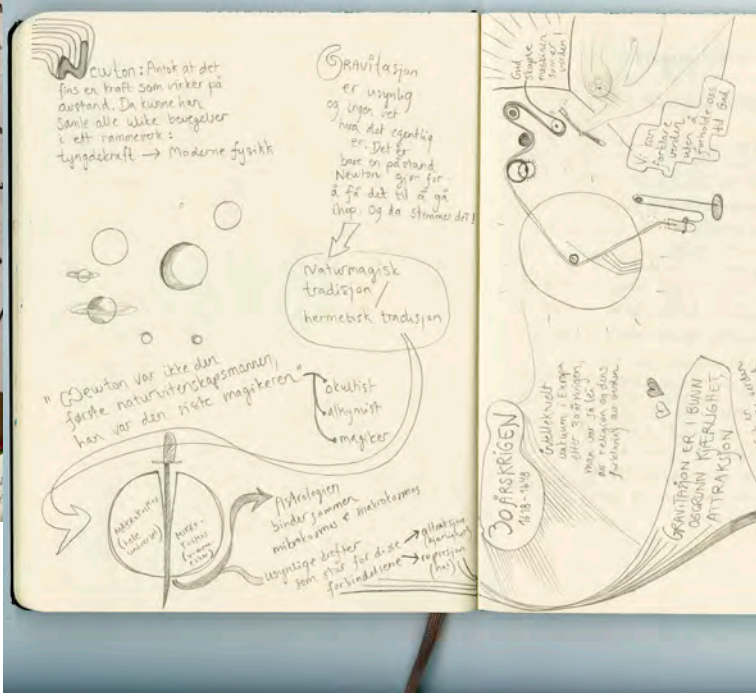 Newton: Antok at det
fins en kraft som virker på
avstand. Da kunne han
samle alle ulike bevegelser
i ett rammeverk:
tyngdekraft → Moderne fysikk
GRAVitasjon
er usynlig
og ingen vet
hva det egentlig
er. Det er
bare en påstand
Newton gjør for
å få det til å gå
ihop. Og da stemmer det!
Naturmagisk
tradisjon /
hermetisk tradisjon
"Newton var ikke den
første naturvitenskapsmannen,
han var den siste magikeren"
okultist
alkymist
magiker
MAKROKOSMOS
(hele
universet)
MIKRO-
KOSMOS
Astrologien
binder sammen
mikrokosmos & makrokosmos
usynlige krefter
som står for disse
forbindelsene
→ attraksjon
(kjærlighet)
→ represjon
(hat)
Gud
skapte
maskinen
som er
verden!
Vi kan
forklare
verden
uten å
forholde oss
til Gud
30 ÅRSKRIGEN
1618-1648
intellektuelt
vakuum i Europa
etter 30årskrigen,
man var så lei
av religion og dens
forklaring av verden.
GRAVITASJON ER I BUNN
OG GRUNN KJÆRLIGHET,
ATTRAKSJON